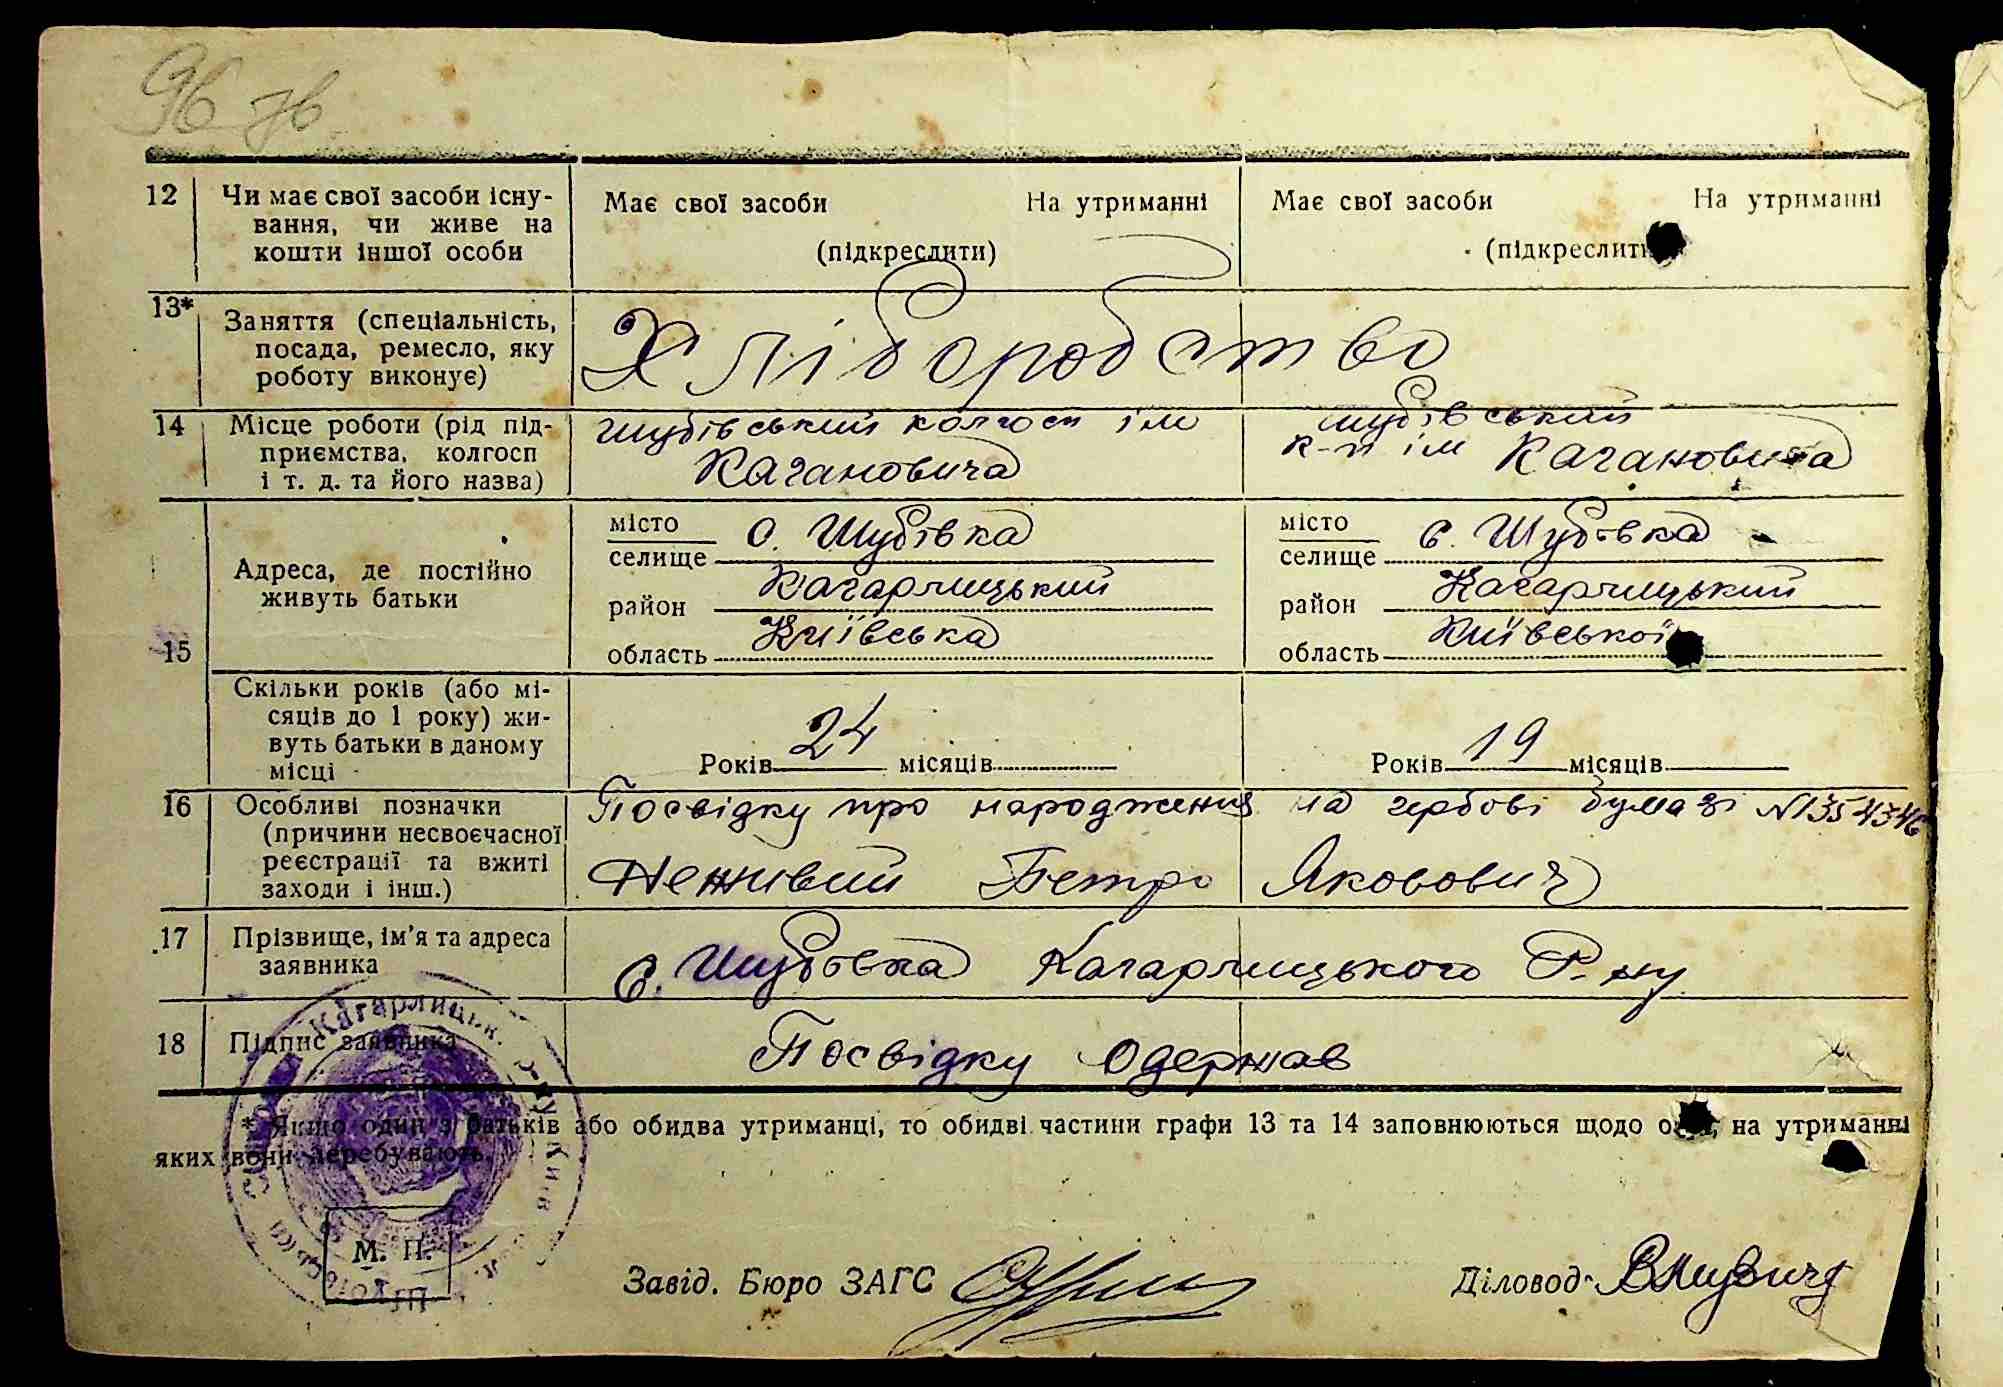 12 Чи має свої засоби існу- Має свої засоби На утриманні Має свої засоби На утриманні
вання, чи живе на
кошти іншої особи (підкреслити) (підкреслити
13* Заняття (спеціальність,
посада, ремесло, яку Хліборобство
роботу виконує)
14 Місце роботи (рід під- Шубівський колгосп ім Шубівський
приємства, колгосп Кагановича к-п ім Кагановича
і т. д. та його назва)
15 Адреса, де постійно живуть батьки
місто селище С. Шубівка місто селище с. Шубівка
район Кагарлицький район Кагарлицький
область Київська область Київської
Скільки років (або мі-
сяців до 1 року) жи-
вуть батьки в даному
місці Років 24 місяців Років 19 місяців
16 Особливі позначки Посвідку про народження на гербові бумазі N1354346
(причини несвоєчасної
реєстрації та вжиті Неживий Петро Якович
заходи і інш.)
17 Прізвище, ім'я та адреса
заявника с. Шубівка Кагарлицького Р-ну
18 Підпис заявника Посвідку Одержав
* Якщо один з батьків або обидва утриманці, то обидві частини графи 13 та 14 заповнюються щодо на утриманні
яких вони перебувають.
Кагарлицьк.
М. П.
Завід. Бюро ЗАГС Діловод